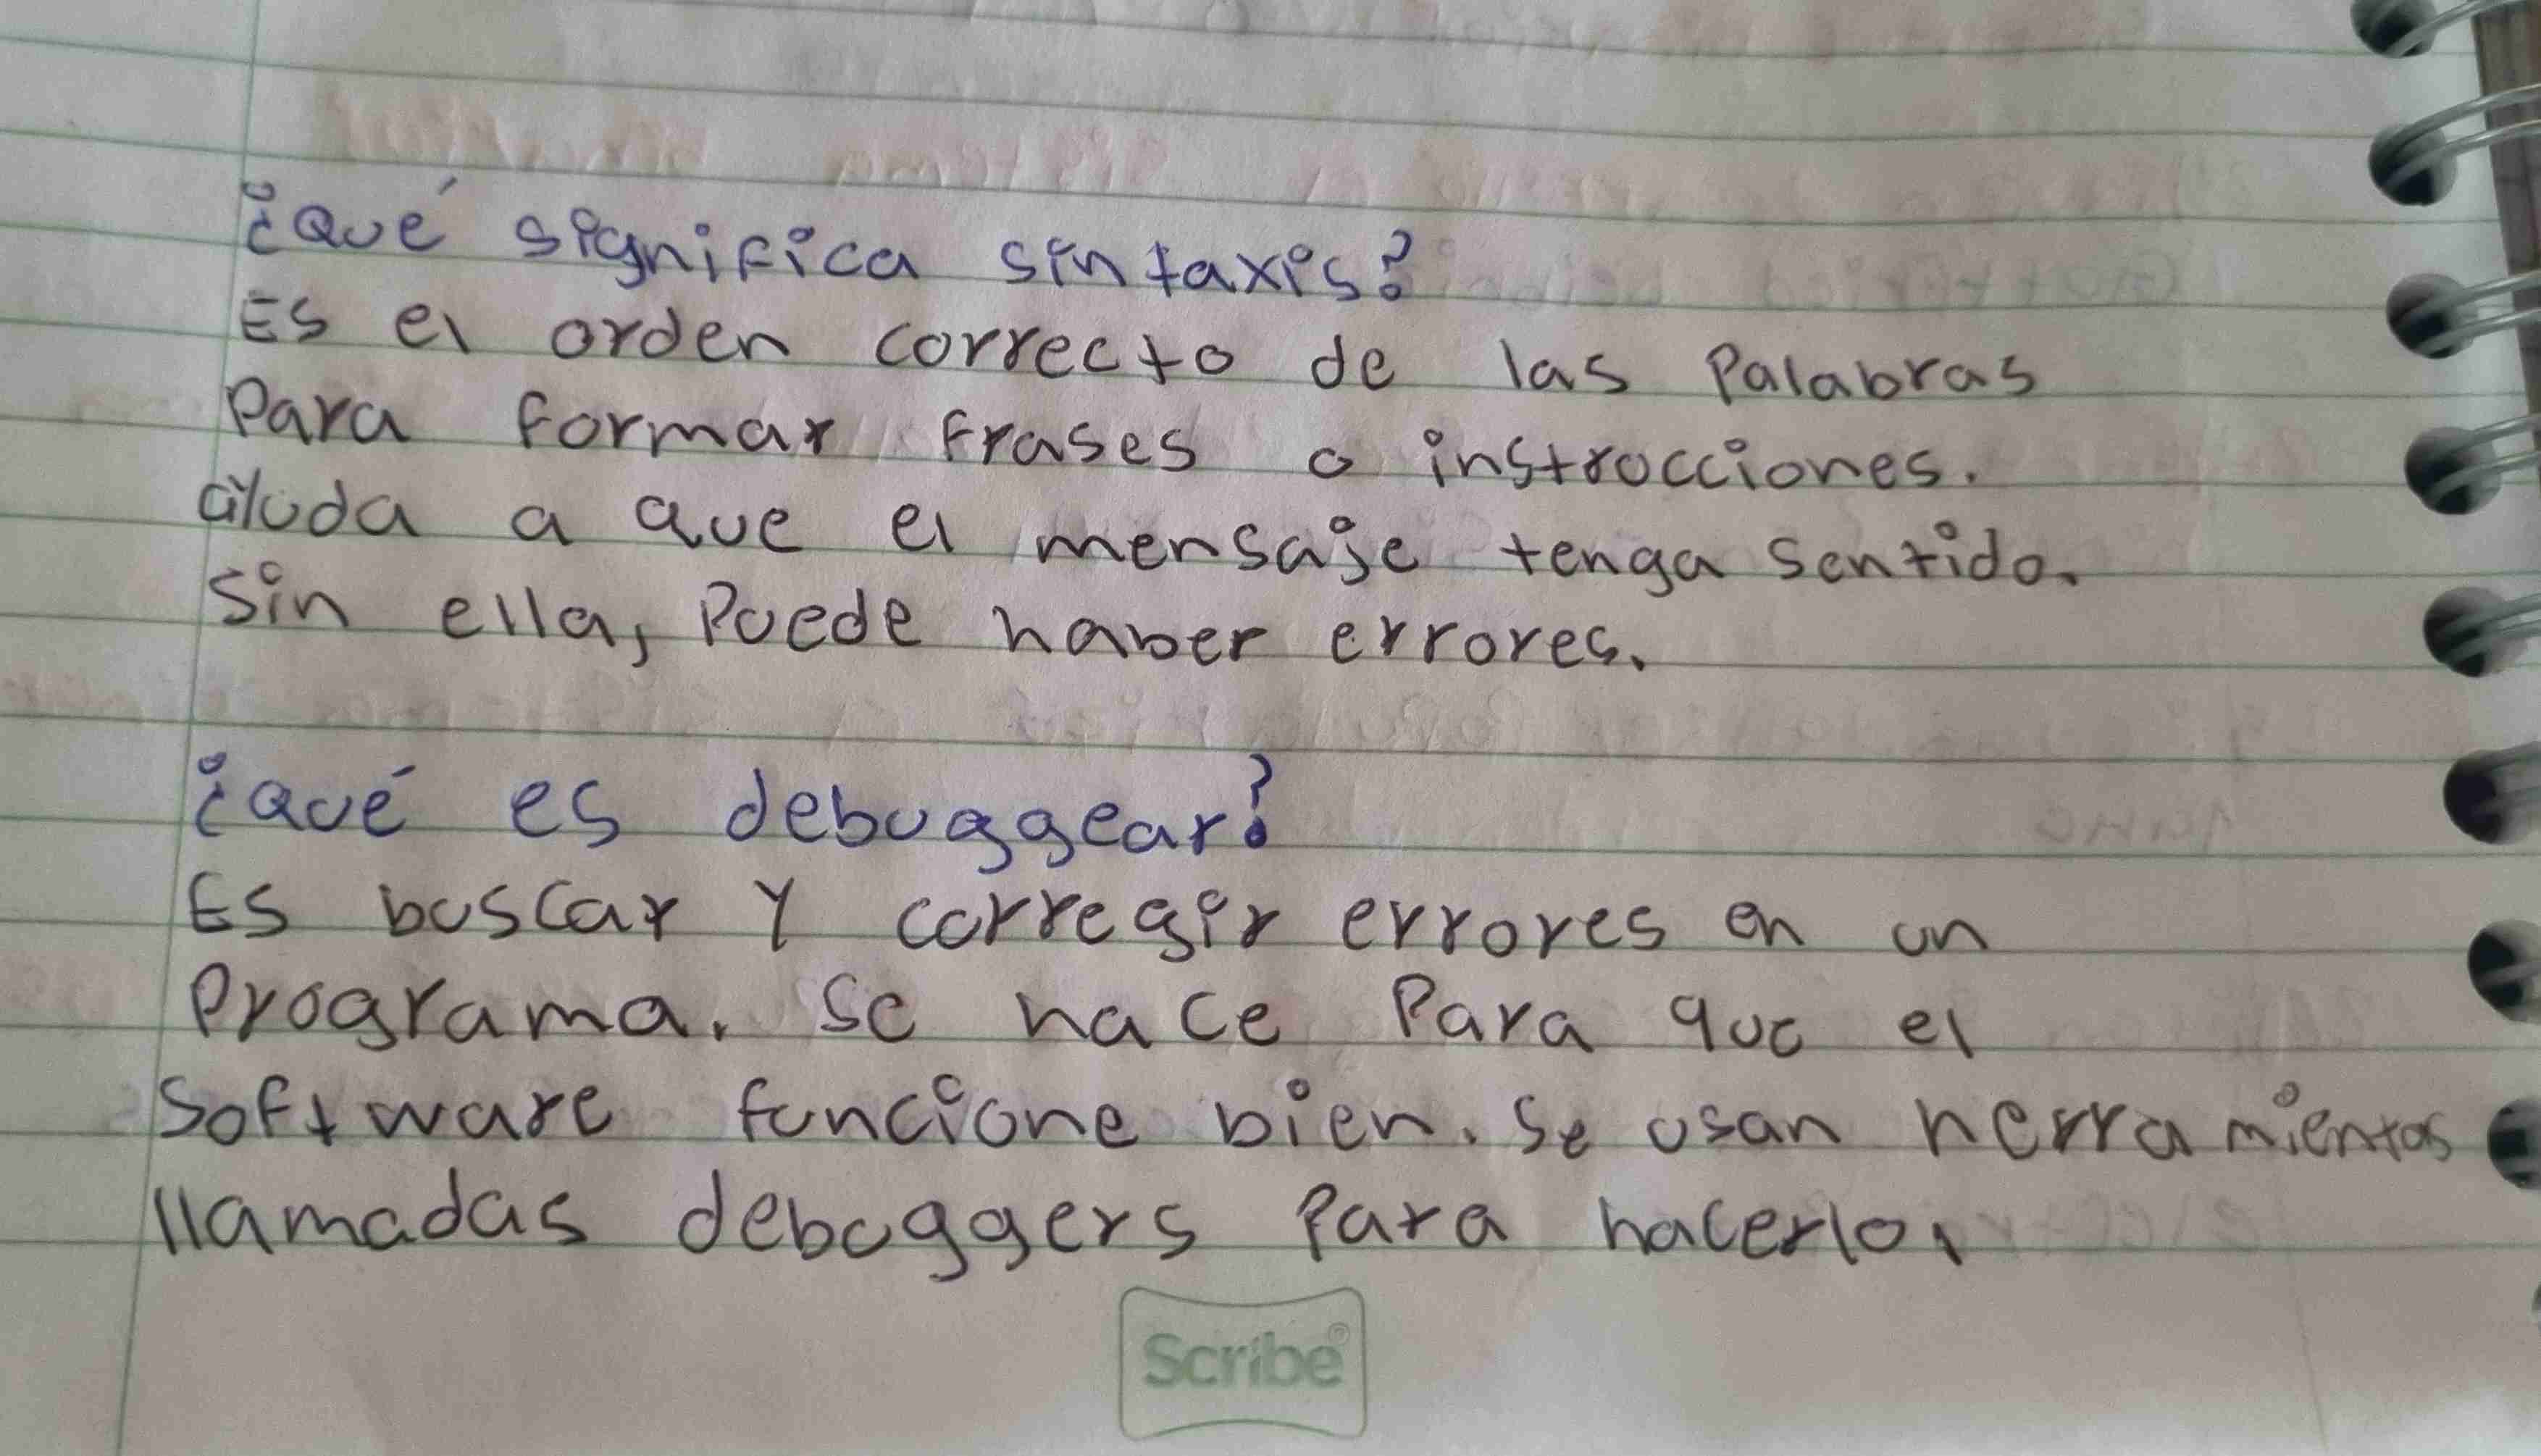 ¿Qué significa sintaxis?
Es el orden correcto de las Palabras
Para formar frases o instrucciones.
ayuda a que el mensaje tenga sentido.
Sin ella, Puede haber errores.
¿qué es debuggear?
Es buscar Y corregir errores en un
Programa. Se hace Para que el
Software funcione bien. Se usan herramientas
llamadas debuggers Para hacerlo.
Scribe®